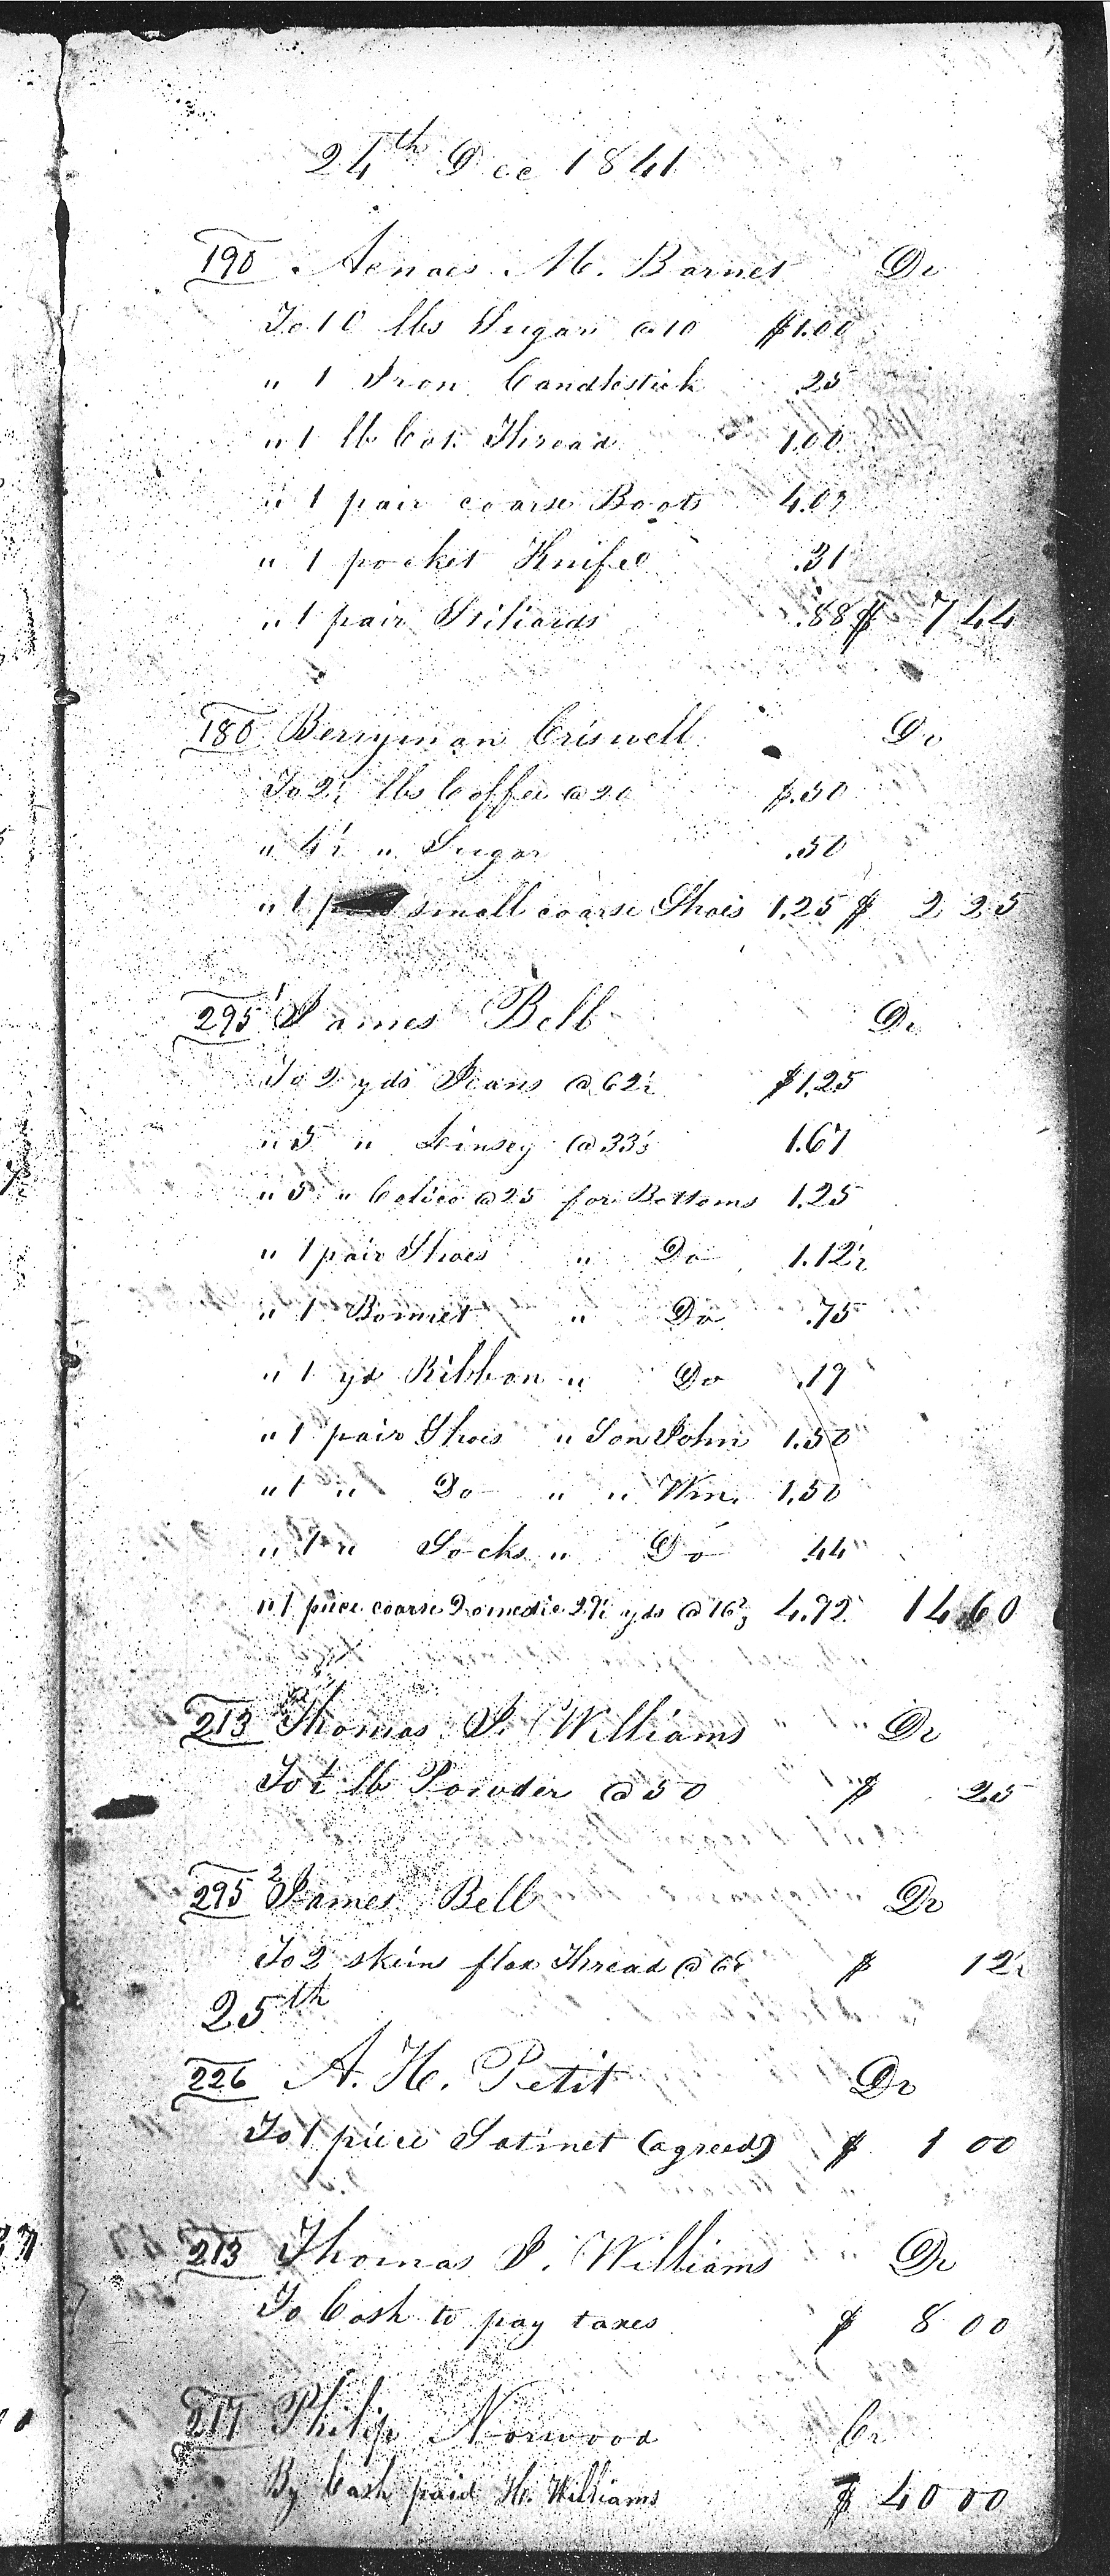 24th Dec 1841
190 Aenaes M. Barnet Dr
To 10 lbs Sugar @ 10 $1.00
" 1 Iron Candlestick .25
" 1 lb Cot. Thread 1.00
" 1 pair coarse Boots 4.00
" 1 pocket Knife .31
" 1 pair Stiliards .88 $ 7 44
180 Berryman Criswell Dr
To 2½ lbs Coffee @ 20 $.50
" 4½ " Sugar .50
" 1 small coarse Shoes 1.25 $ 2 25
295 1 James Bell Dr
To 2 yds Jeans @ 62½ $1.25
" 5 " Linsey @ 33⅓ 1.67
" 5 " Calico @ 25 for Bottoms 1.25
" 1 pair Shoes " Do 1.12½
" 1 Bonnet " Do .75
" 1 yd Ribbon " Do .19
" 1 pair Shoes " Son John 1.50
" 1 " Do " " Wm. 1.50
" 1 " Socks " Do .44
" 1 piece coarse Domestic 29½ yds @ 16⅔ 4.92 14 60
213 Thomas J. Williams Dr
To ½ lb Powder @ 50 $ 25
295 2 James Bell Dr
To 2 skeins flax Thread @ 6¼ $ 12½
25th
226 A. H. Petit Dr
To 1 piece Satinet (agreed) $ 1 00
213 Thomas J. Williams Dr
To Cash to pay taxes $ 8 00
217 Philip Norwood Cr
By Cash paid H. Williams $ 40 00